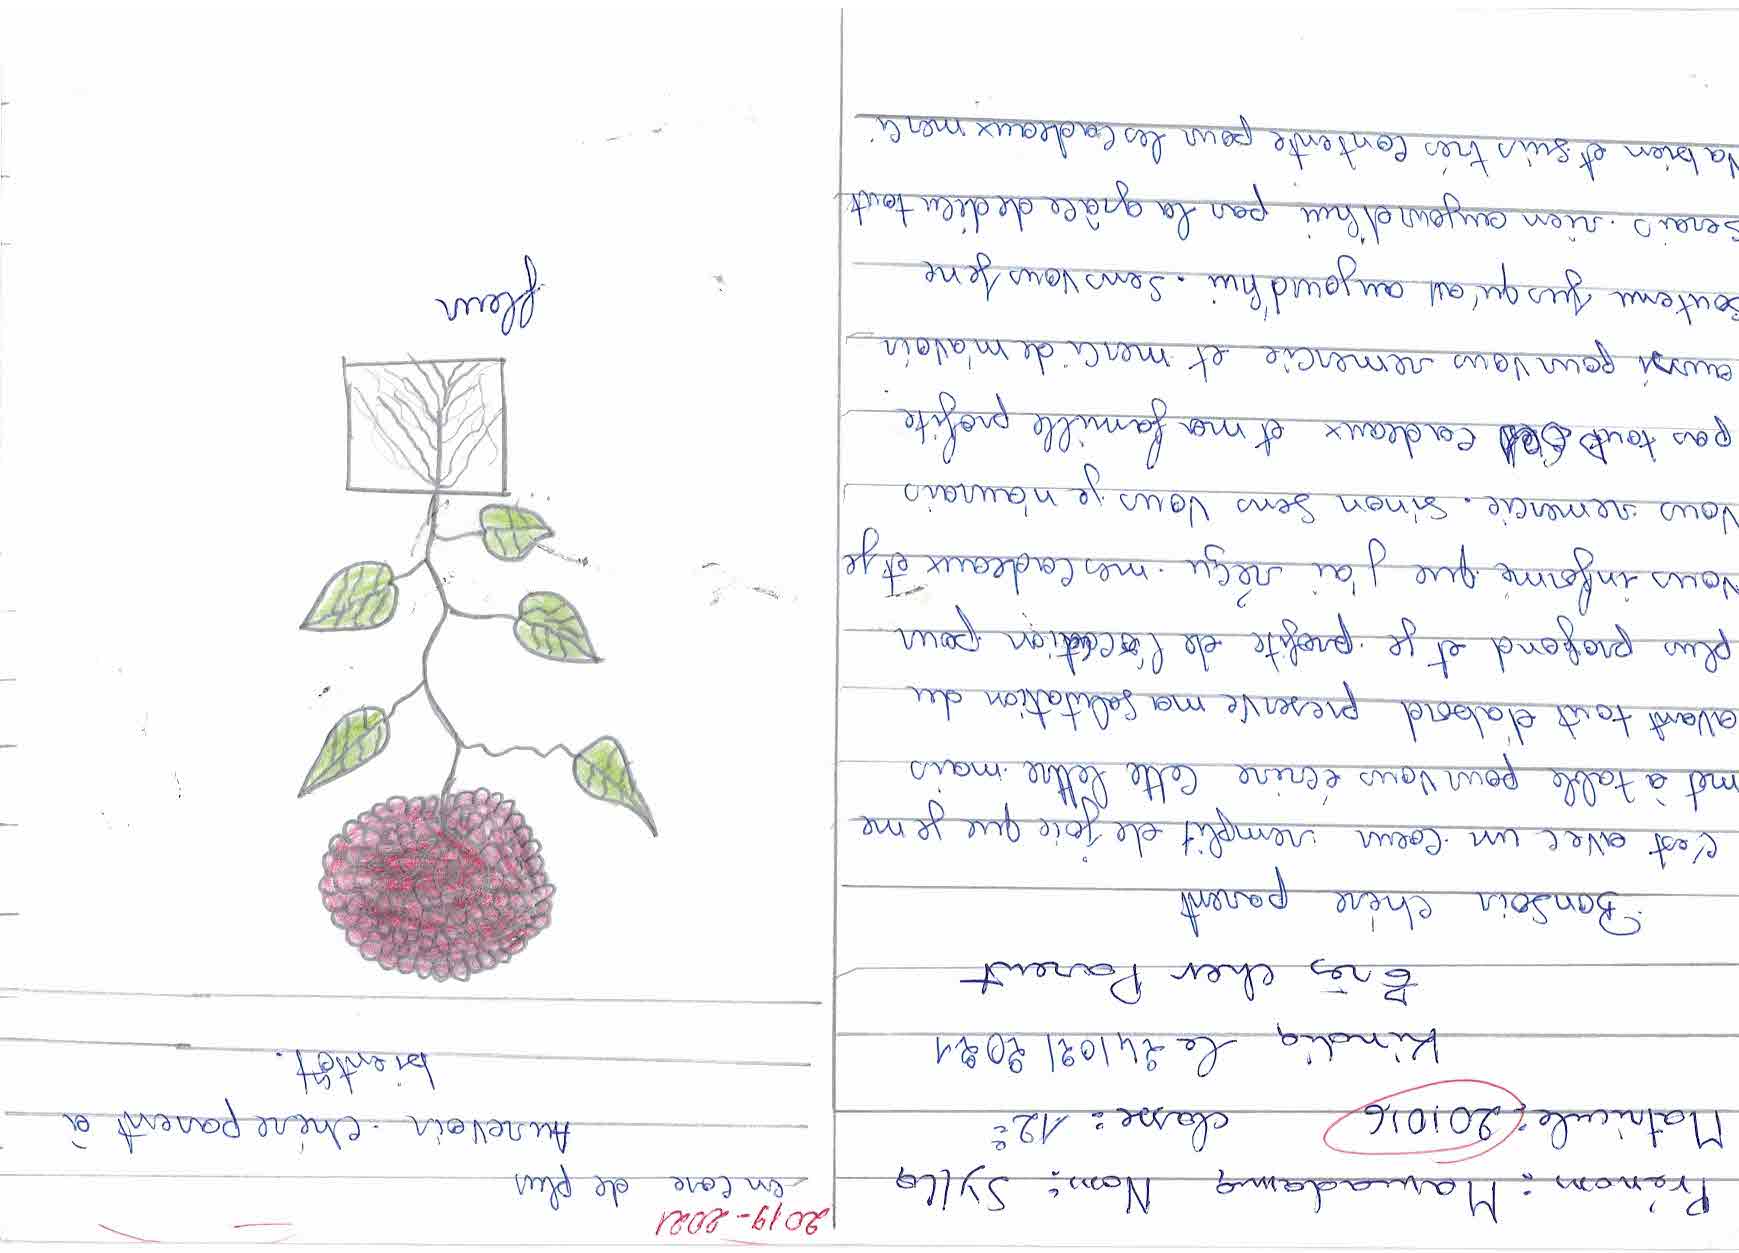 Prénom : Mamadama Nom : Sylla
Matricule : 201016 classe : 12è
Kindia le 24/02/2021
Très cher Parent
Bonsoir chère parent
c'est avec un coeur remplit de joie que je me
met à table pour vous écrire cette lettre mais
avant tout d'abord preserve ma salutation du
plus profond et je profite de l'occation pour
vous informé que j'ai reçu mes cadeaux et je
vous remercie. Sinon sens vous je n'aurais
pas tout cadeaux et ma famille profite
aussi pour vous remercie et merci de m'avoir
soutenu jusqu'au aujourd'hui. Sens vous je ne
serais rien aujourd'hui par la grâce de dieu tout
va bien et suis très contente pour les cadeaux merci
2019-2021
en core de plus
Aurevoir chère parent à
bientôt.
fleur